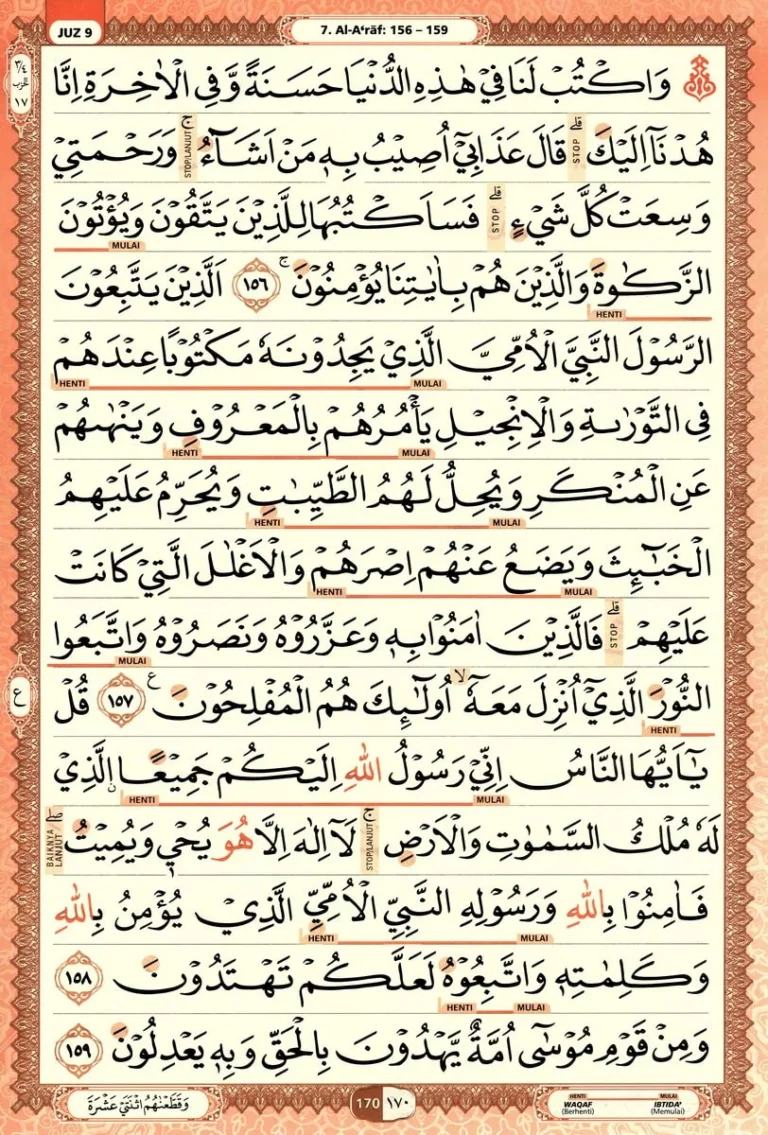 JUZ 9
7. Al-A‘rāf: 156 – 159
٣/٤
الحزب
١٧
وَاكْتُبْ لَنَا فِيْ هٰذِهِ الدُّنْيَا حَسَنَةً وَّفِى الْاٰخِرَةِ اِنَّا
هُدْنَآ اِلَيْكَۗ قَالَ عَذَابِيْٓ اُصِيْبُ بِهٖ مَنْ اَشَاۤءُۚ وَرَحْمَتِيْ
STOP
STOP/LANJUT
وَسِعَتْ كُلَّ شَيْءٍۗ فَسَاَكْتُبُهَا لِلَّذِيْنَ يَتَّقُوْنَ وَيُؤْتُوْنَ
STOP
MULAI
الزَّكٰوةَ وَالَّذِيْنَ هُمْ بِاٰيٰتِنَا يُؤْمِنُوْنَۚ ١٥٦ اَلَّذِيْنَ يَتَّبِعُوْنَ
HENTI
الرَّسُوْلَ النَّبِيَّ الْاُمِّيَّ الَّذِيْ يَجِدُوْنَهٗ مَكْتُوْبًا عِنْدَهُمْ
MULAI HENTI
فِى التَّوْرٰىةِ وَالْاِنْجِيْلِ يَأْمُرُهُمْ بِالْمَعْرُوْفِ وَيَنْهٰىهُمْ
MULAI HENTI
عَنِ الْمُنْكَرِ وَيُحِلُّ لَهُمُ الطَّيِّبٰتِ وَيُحَرِّمُ عَلَيْهِمُ
MULAI HENTI
الْخَبٰۤىِٕثَ وَيَضَعُ عَنْهُمْ اِصْرَهُمْ وَالْاَغْلٰلَ الَّتِيْ كَانَتْ
MULAI HENTI
عَلَيْهِمْۗ فَالَّذِيْنَ اٰمَنُوْا بِهٖ وَعَزَّرُوْهُ وَنَصَرُوْهُ وَاتَّبَعُوا
STOP
MULAI
النُّوْرَ الَّذِيْٓ اُنْزِلَ مَعَهٗٓ ۙاُولٰۤىِٕكَ هُمُ الْمُفْلِحُوْنَ ࣖ ١٥٧ قُلْ
ع
HENTI
يٰٓاَيُّهَا النَّاسُ اِنِّيْ رَسُوْلُ اللّٰهِ اِلَيْكُمْ جَمِيْعًا ۨالَّذِيْ
MULAI HENTI
لَهٗ مُلْكُ السَّمٰوٰتِ وَالْاَرْضِۚ لَآ اِلٰهَ اِلَّا هُوَ يُحْيٖ وَيُمِيْتُۖ
STOP/LANJUT
BAIKNYA LANJUT
فَاٰمِنُوْا بِاللّٰهِ وَرَسُوْلِهِ النَّبِيِّ الْاُمِّيِّ الَّذِيْ يُؤْمِنُ بِاللّٰهِ
MULAI HENTI
وَكَلِمٰتِهٖ وَاتَّبِعُوْهُ لَعَلَّكُمْ تَهْتَدُوْنَ ١٥٨
MULAI HENTI
وَمِنْ قَوْمِ مُوْسٰٓى اُمَّةٌ يَّهْدُوْنَ بِالْحَقِّ وَبِهٖ يَعْدِلُوْنَ ١٥٩
وَقَطَّعْنٰهُمُ اثْنَتَيْ عَشْرَةَ
170 ١٧٠
HENTI MULAI
WAQAF IBTIDA'
(Berhenti) (Memulai)